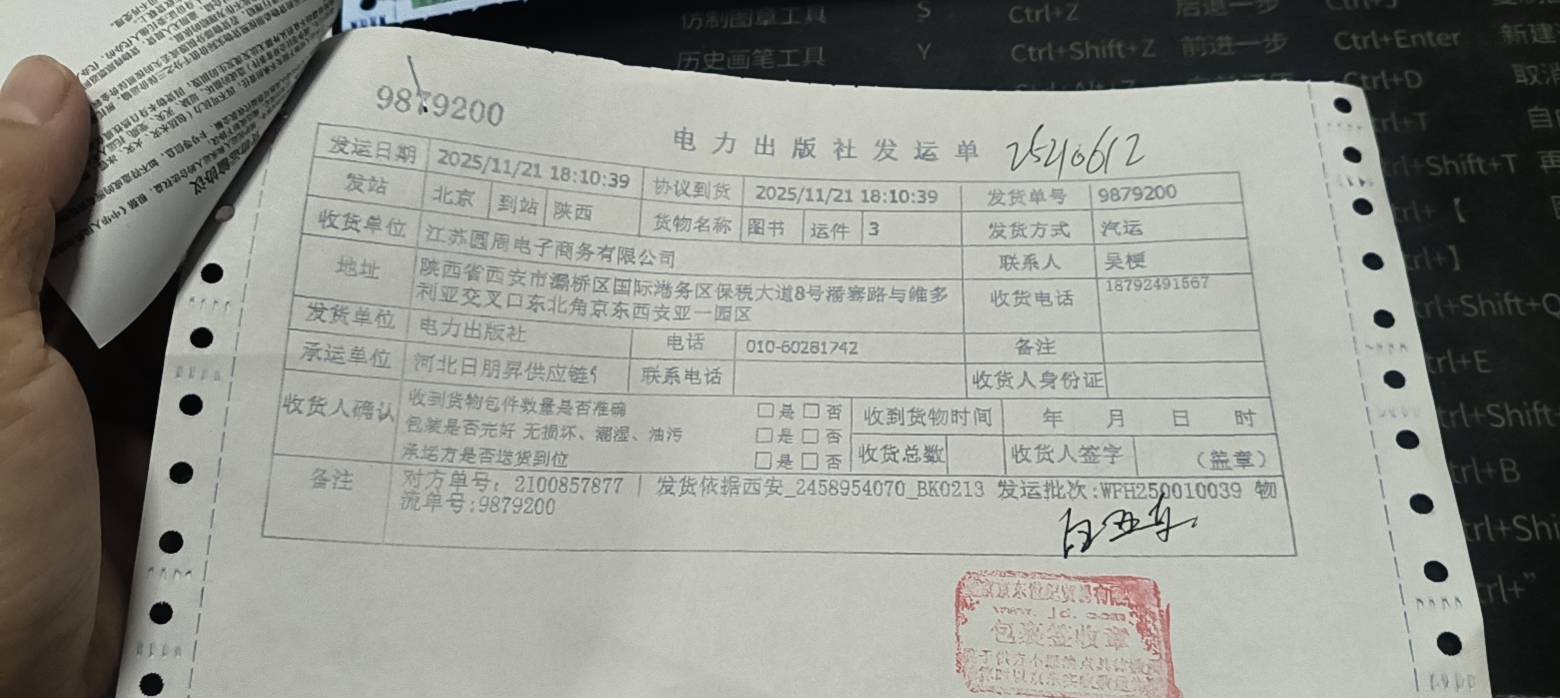 仿制图章工具 S Ctrl+Z 后退一步
历史画笔工具 Y Ctrl+Shift+Z 前进一步 Ctrl+Enter 新建
Ctrl+D 取消
9879200
电力出版社发运单 2540612
发运日期 2025/11/21 18:10:39 协议到货 2025/11/21 18:10:39 发货单号 9879200
发站 北京 到站 陕西 货物名称 图书 运件 3 发货方式 汽运
收货单位 江苏圆周电子商务有限公司 联系人 吴梗
地址 陕西省西安市灞桥区国际港务区保税大道8号潘骞路与维多
利亚交叉口东北角京东西安亚一园区 收货电话 18792491567
发货单位 电力出版社 电话 010-60281742 备注
承运单位 河北日朋昇供应链 联系电话 收货人身份证
收货人确认 收到货物包件数量是否准确 □是 □否 收到货物时间 年 月 日 时
包装是否完好 无损坏、潮湿、油污 □是 □否
承运方是否送货到位 □是 □否 收货总数 收货人签字 (盖章)
备注 对方单号: 2100857877 | 发货依据西安_2458954070_BK0213 发运批次:WFH250010039 物
流单号:9879200
www.jd.com
包裹签收章